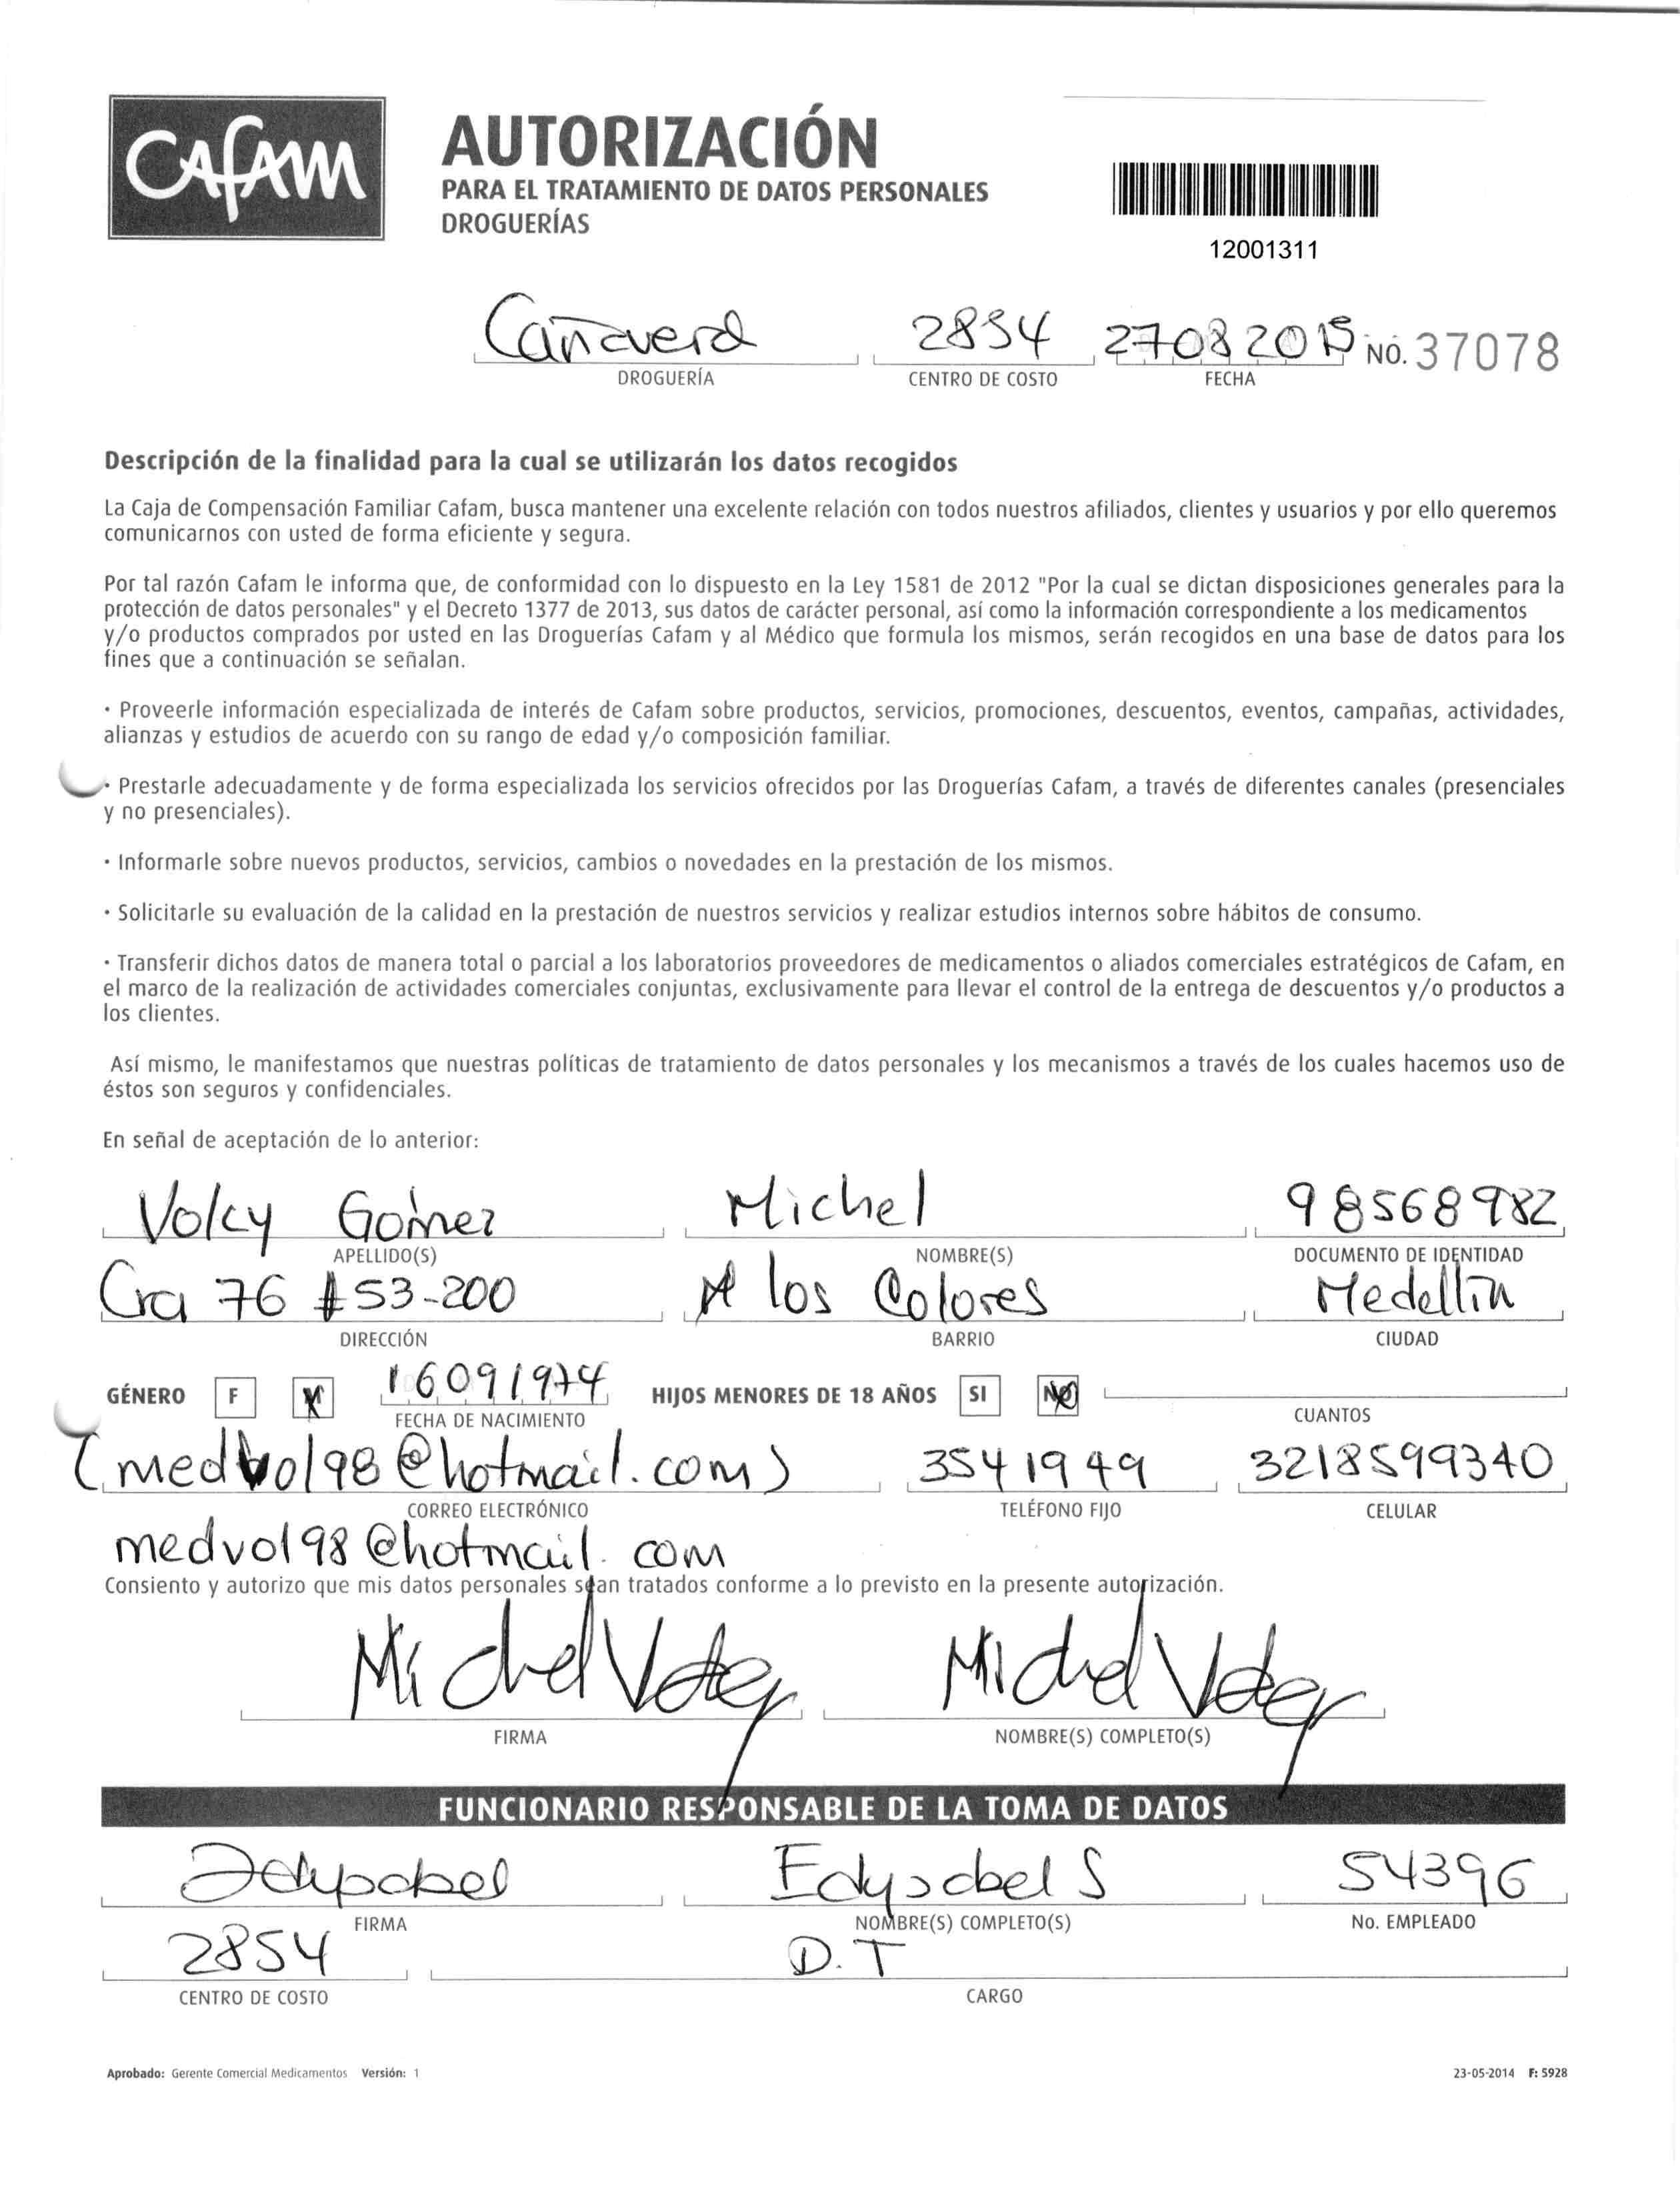 CAFAM
AUTORIZACIÓN
PARA EL TRATAMIENTO DE DATOS PERSONALES
DROGUERÍAS
12001311
Cañaveral 2854 27082015 NO. 37078
DROGUERÍA CENTRO DE COSTO FECHA
Descripción de la finalidad para la cual se utilizarán los datos recogidos
La Caja de Compensación Familiar Cafam, busca mantener una excelente relación con todos nuestros afiliados, clientes y usuarios y por ello queremos
comunicarnos con usted de forma eficiente y segura.
Por tal razón Cafam le informa que, de conformidad con lo dispuesto en la Ley 1581 de 2012 "Por la cual se dictan disposiciones generales para la
protección de datos personales" y el Decreto 1377 de 2013, sus datos de carácter personal, así como la información correspondiente a los medicamentos
y/o productos comprados por usted en las Droguerías Cafam y al Médico que formula los mismos, serán recogidos en una base de datos para los
fines que a continuación se señalan.
· Proveerle información especializada de interés de Cafam sobre productos, servicios, promociones, descuentos, eventos, campañas, actividades,
alianzas y estudios de acuerdo con su rango de edad y/o composición familiar.
· Prestarle adecuadamente y de forma especializada los servicios ofrecidos por las Droguerías Cafam, a través de diferentes canales (presenciales
y no presenciales).
· Informarle sobre nuevos productos, servicios, cambios o novedades en la prestación de los mismos.
· Solicitarle su evaluación de la calidad en la prestación de nuestros servicios y realizar estudios internos sobre hábitos de consumo.
· Transferir dichos datos de manera total o parcial a los laboratorios proveedores de medicamentos o aliados comerciales estratégicos de Cafam, en
el marco de la realización de actividades comerciales conjuntas, exclusivamente para llevar el control de la entrega de descuentos y/o productos a
los clientes.
Así mismo, le manifestamos que nuestras políticas de tratamiento de datos personales y los mecanismos a través de los cuales hacemos uso de
éstos son seguros y confidenciales.
En señal de aceptación de lo anterior:
Volcy Gómez Michel 98568982
APELLIDO(S) NOMBRE(S) DOCUMENTO DE IDENTIDAD
Cra 76 #53-200 los Colores Medellín
DIRECCIÓN BARRIO CIUDAD
GÉNERO F M 16091974 HIJOS MENORES DE 18 AÑOS SI NO
FECHA DE NACIMIENTO CUANTOS
(medvol98@hotmail.com) 3541949 3218599340
CORREO ELECTRÓNICO TELÉFONO FIJO CELULAR
medvol98@hotmail.com
Consiento y autorizo que mis datos personales sean tratados conforme a lo previsto en la presente autorización.
Michel Volcy Michel Volcy
FIRMA NOMBRE(S) COMPLETO(S)
FUNCIONARIO RESPONSABLE DE LA TOMA DE DATOS
Edysabel S 54396
FIRMA NOMBRE(S) COMPLETO(S) No. EMPLEADO
2854 D.T
CENTRO DE COSTO CARGO
Aprobado: Gerente Comercial Medicamentos Versión: 1 23-05-2014 F: 5928